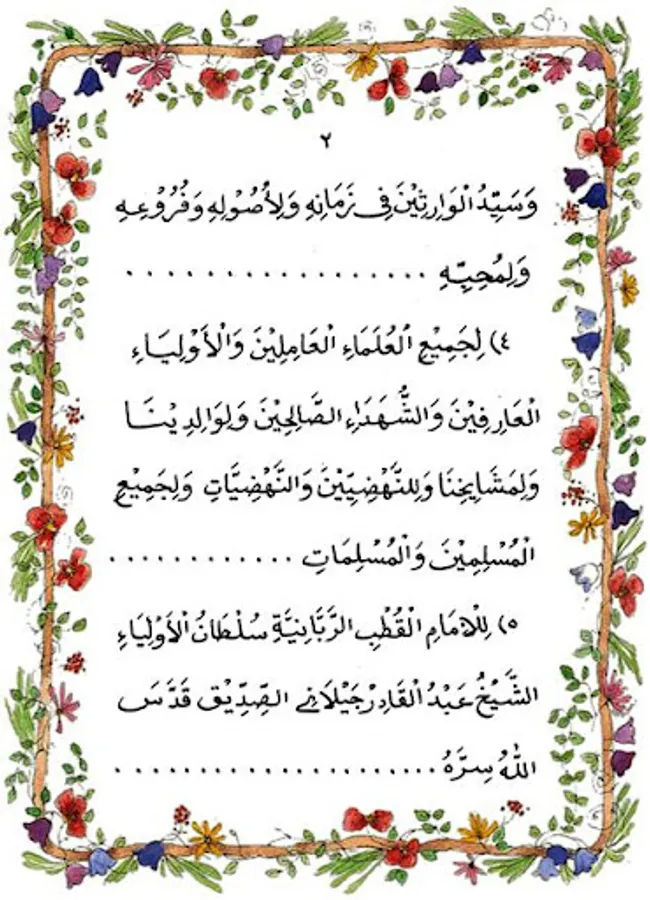 ٢
وَسَيِّدُ الْوَارِثِيْنَ فِى زَمَانِهِ وَلِأُصُوْلِهِ وَفُرُوْعِهِ
وَلِمُحِبِّهِ ..................
٤) لِجَمِيْعِ الْعُلَمَاءِ الْعَامِلِيْنَ وَالْأَوْلِيَاءِ
الْعَارِفِيْنَ وَالشُّهَدَاءِ الصَّالِحِيْنَ وَلِوَالِدِيْنَا
وَلِمَشَايِخِنَا وَلِلنَّهْضِيِّيْنَ وَالنَّهْضِيَّاتِ وَلِجَمِيْعِ
الْمُسْلِمِيْنَ وَالْمُسْلِمَاتِ ............
٥) لِلْاِمَامِ الْقُطْبِ الرَّبَّانِيَّةِ سُلْطَانُ الْأَوْلِيَاءِ
الشَّيْخُ عَبْدُ الْقَادِرْ جَيْلَانِي الصِّدِّيْق قَدَّسَ
اللهُ سِرَّهُ ....................